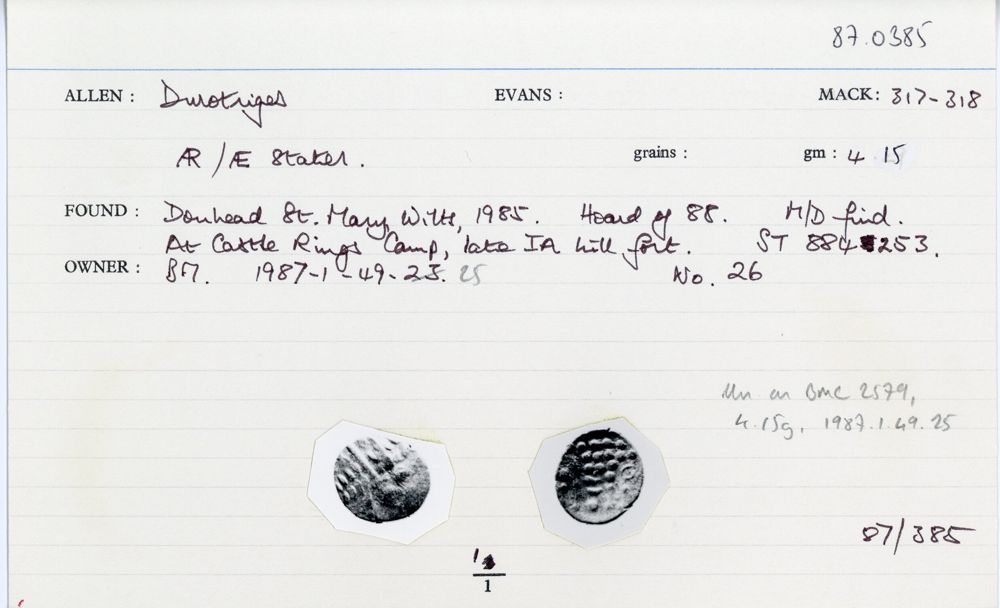 87.0385
ALLEN : Durotriges EVANS : MACK: 317-318
Æ / Æ Stater. grains : gm : 4 15
FOUND : Donhead St. Mary, Wilts, 1985. Hoard of 88. M/D find.
At Castle Rings Camp, late IA hill fort. ST 884 253.
OWNER : BM. 1987-1-49-23. 25 No. 26
as BMC 2579,
4.15g, 1987.1.49.25
87/385
1
1